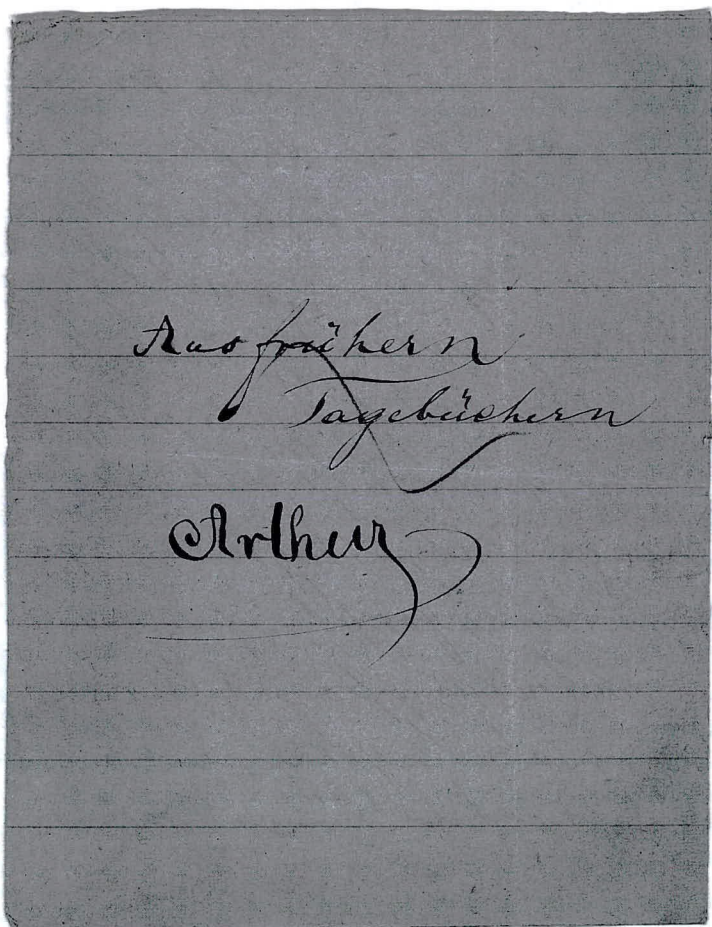 Aus frühern
Tagebüchern
Arthur